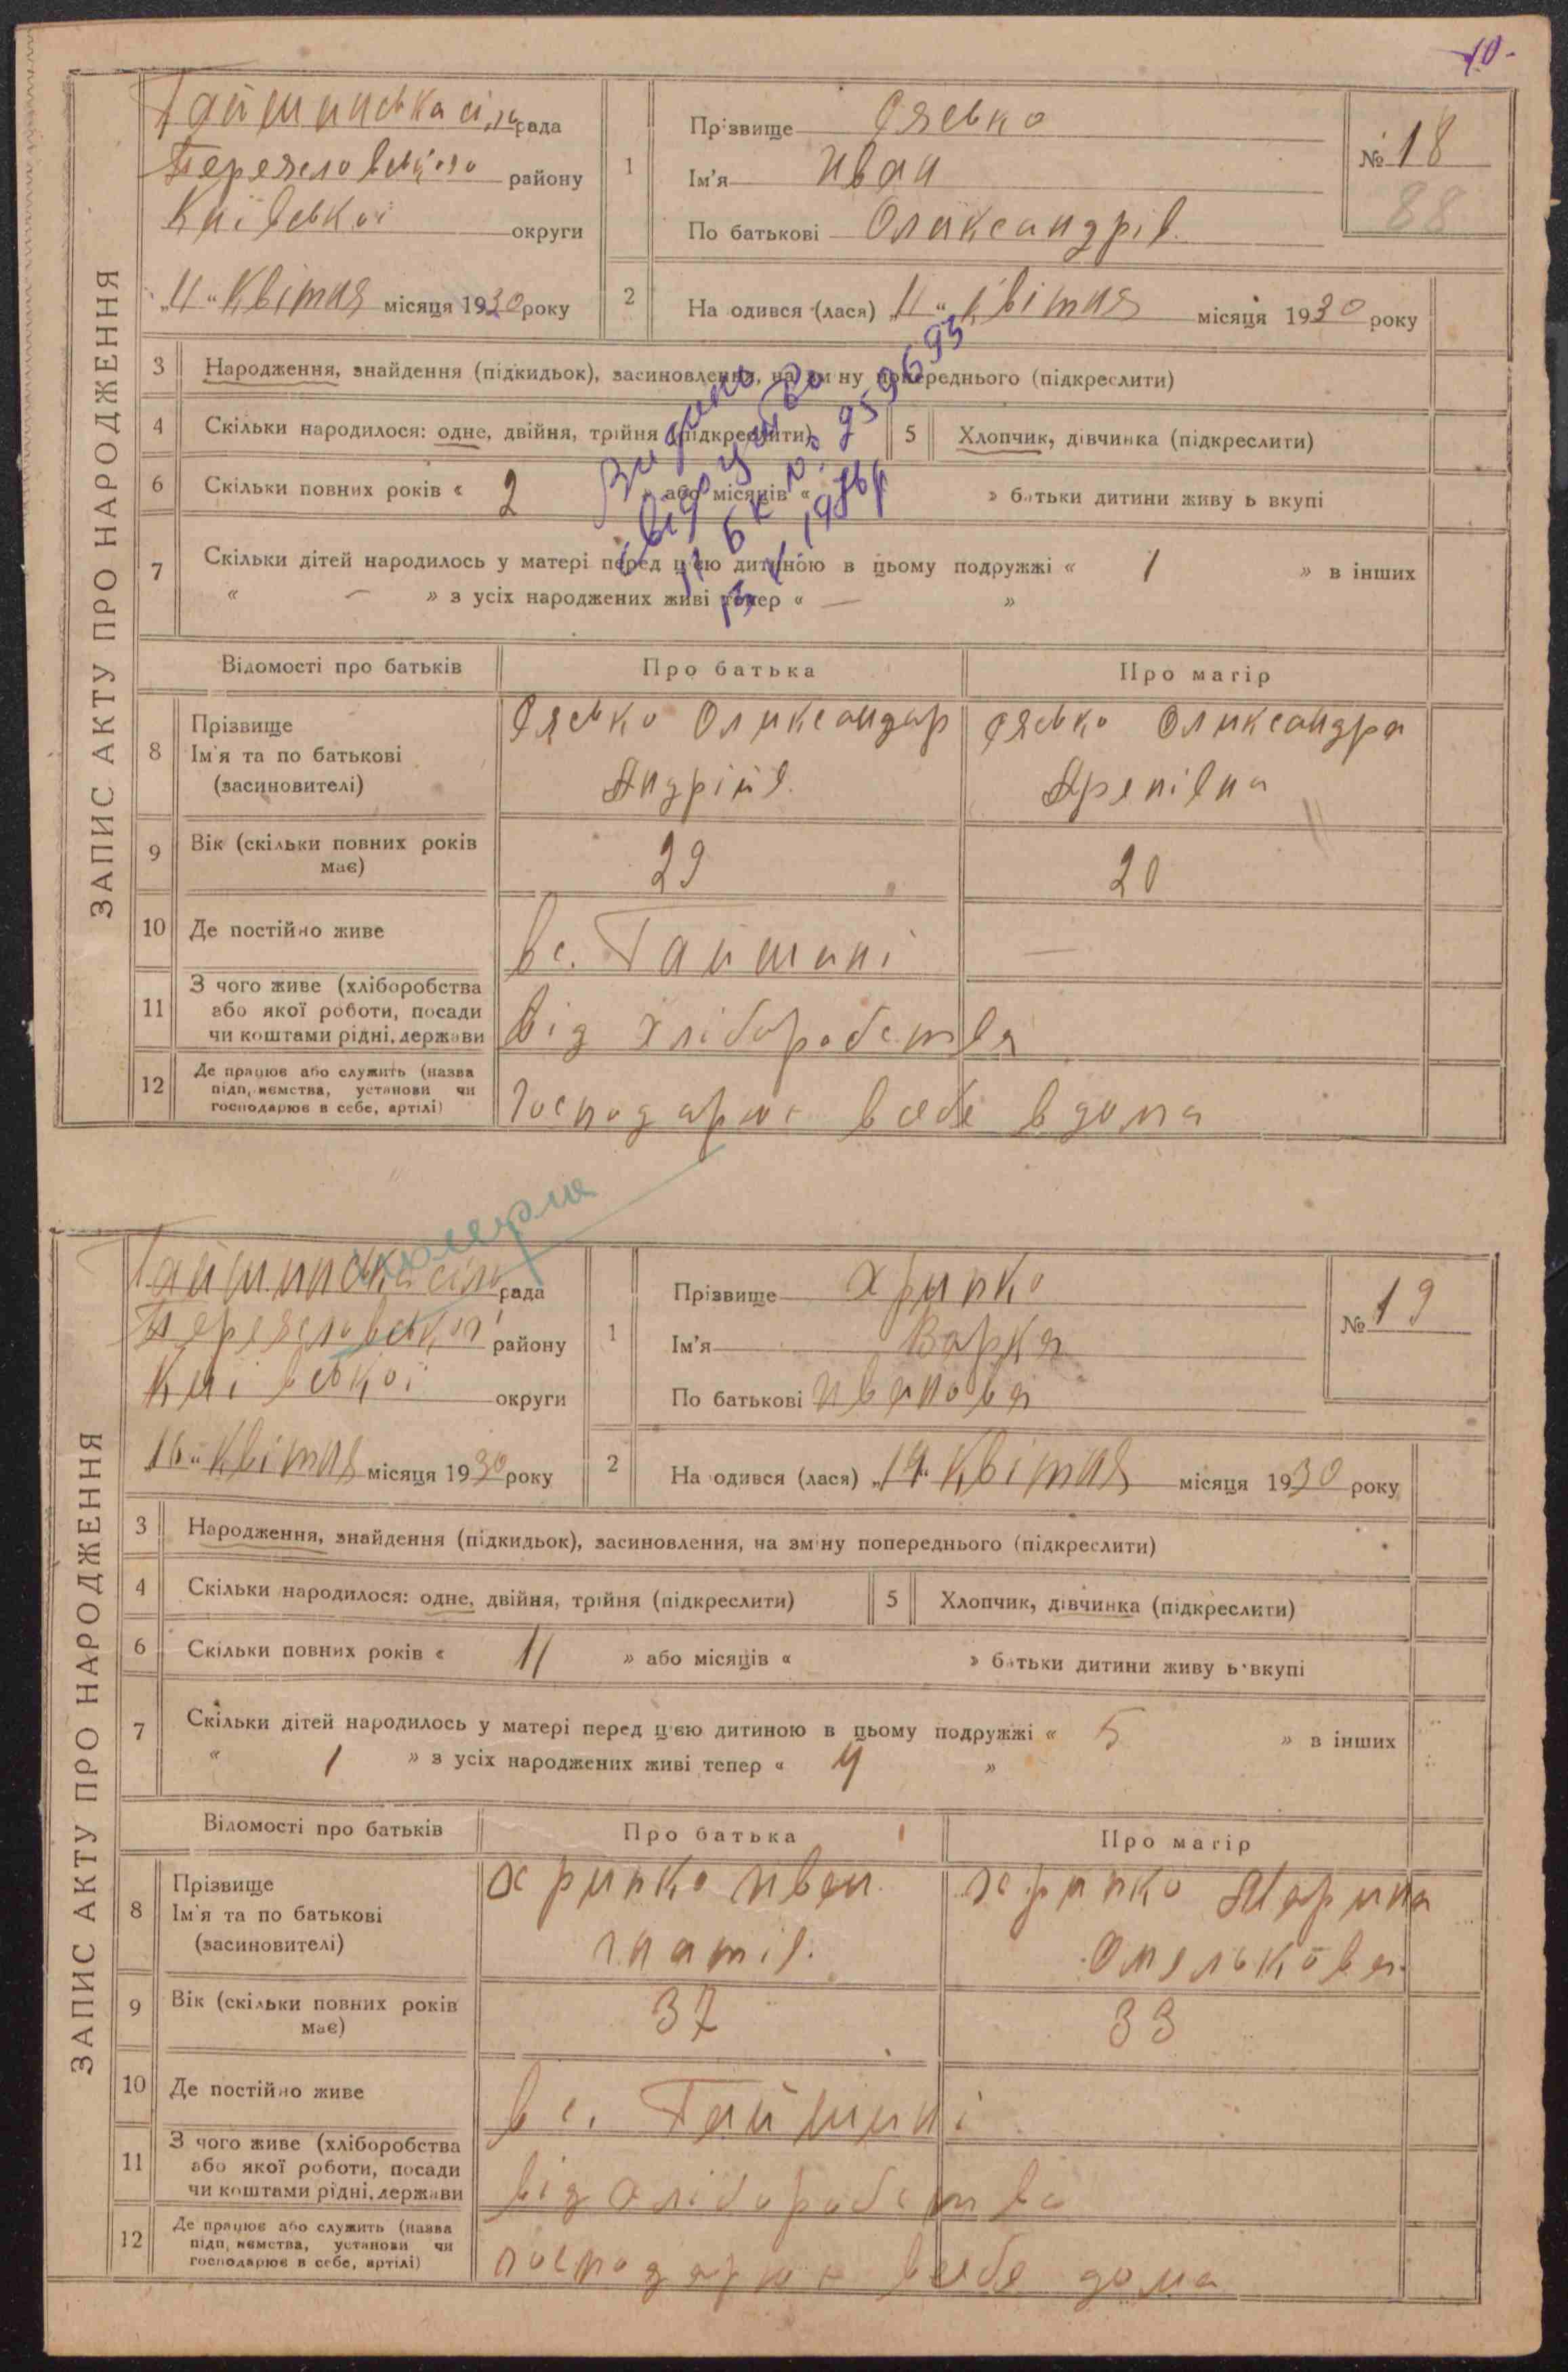 10-
ЗАПИС АКТУ ПРО НАРОДЖЕННЯ
Гайшинська сіль рада
Переяславського району
Київської округи
„11“ Квітня місяця 1930 року
1
Прізвище
Ім'я Иван
По батькові Олександрів.
№ 18
88
2
На одився (лася) „11“ Квітня місяця 1930 року
3 Народження, знайдення (підкидьок), засиновлення, на зміну попереднього (підкреслити)
4 Скільки народилося: одне, двійня, трійня (підкреслити)
5 Хлопчик, дівчинка (підкреслити)
6 Скільки повних років « 2 » або місяців « » батьки дитини живу ь вкупі
7 Скільки дітей народилось у матері перед цією дитиною в цьому подружжі « 1 » в інших
« — » з усіх народжених живі тепер « — »
Відомості про батьків
Про батька
Про матір
8 Прізвище
Ім'я та по батькові
(засиновителі)
Олександар
Андріїв.
Олександра
9 Вік (скільки повних років
має)
29
20
10 Де постійно живе
в с. Гайшині
—
11 З чого живе (хліборобства
або якої роботи, посади
чи коштами рідні, держави
від хліборобства
12 Де працює або служить (назва
підп, иємства, установи чи
господарює в себе, артілі)
Господарює в себе вдома
ЗАПИС АКТУ ПРО НАРОДЖЕННЯ
Гайшинська сіль рада
Переяславської району
Київської округи
16 “ Квітня місяця 1930 року
1
Прізвище Хрипко
Ім'я Варка
По батькові Иванова
№ 19
2
На одився (лася) „14“ Квітня місяця 1930 року
3 Народження, знайдення (підкидьок), засиновлення, на зміну попереднього (підкреслити)
4 Скільки народилося: одне, двійня, трійня (підкреслити)
5 Хлопчик, дівчинка (підкреслити)
6 Скільки повних років « 11 » або місяців « » батьки дитини живу ь вкупі
7 Скільки дітей народилось у матері перед цією дитиною в цьому подружжі « 5 » в інших
« 1 » з усіх народжених живі тепер « 4 »
Відомості про батьків
Про батька
Про матір
8 Прізвище
Ім'я та по батькові
(засиновителі)
Хрипко Иван
Гнатів.
Хрипко Марина
Омелькова
9 Вік (скільки повних років
має)
37
33
10 Де постійно живе
в с. Гайшині
11 З чого живе (хліборобства
або якої роботи, посади
чи коштами рідні, держави
від хліборобства
12 Де працює або служить (назва
підп, иємства, установи чи
господарює в себе, артілі)
господарює в себе дома